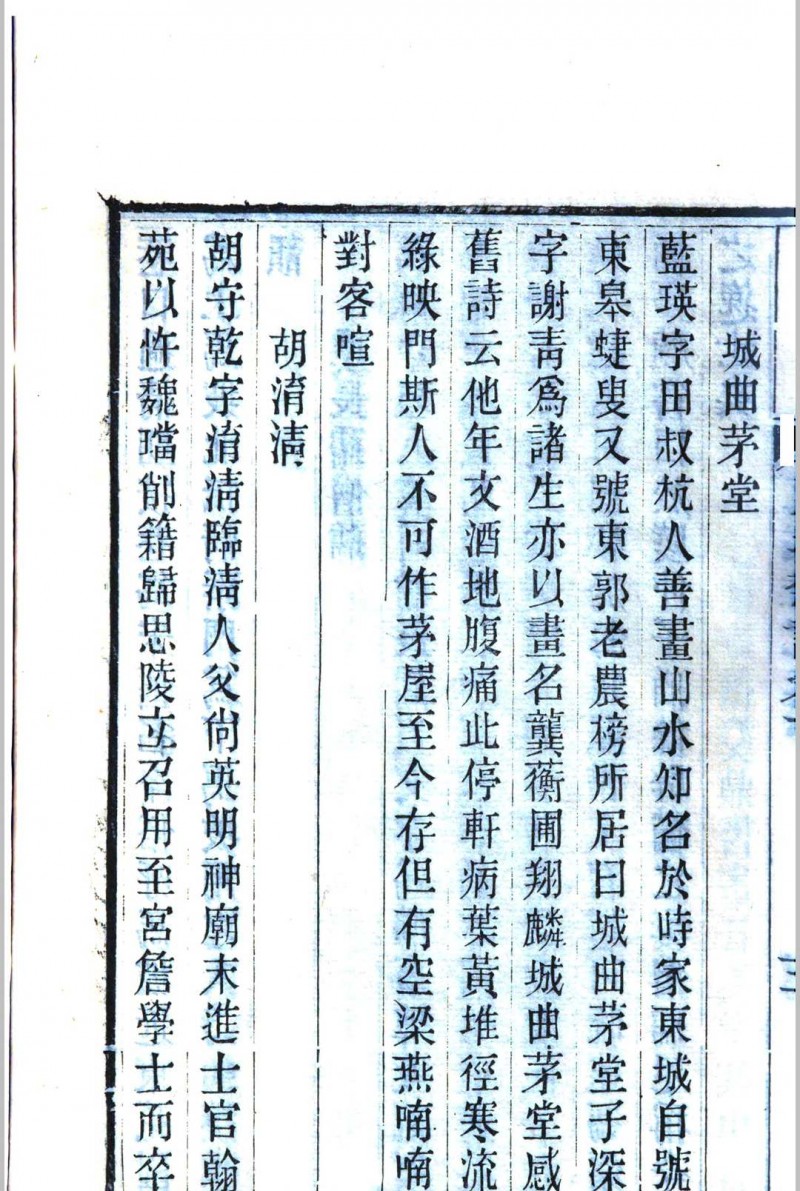 城曲茅堂
藍瑛字田叔杭人善畫山水知名於時家東城自號
東皋蜨叟又號東郭老農榜所居曰城曲茅堂子深
字謝青為諸生亦以畫名龔蘅圃翔麟城曲茅堂感
舊詩云他年文酒地腹痛此停軒病葉黃堆徑寒流
綠映門斯人不可作茅屋至今存但有空梁燕喃喃
對客喧
胡淯清
胡守乾字淯清臨清人父尚英明神廟末進士官翰
苑以忤魏璫削籍歸思陵立召用至宮詹學士而卒